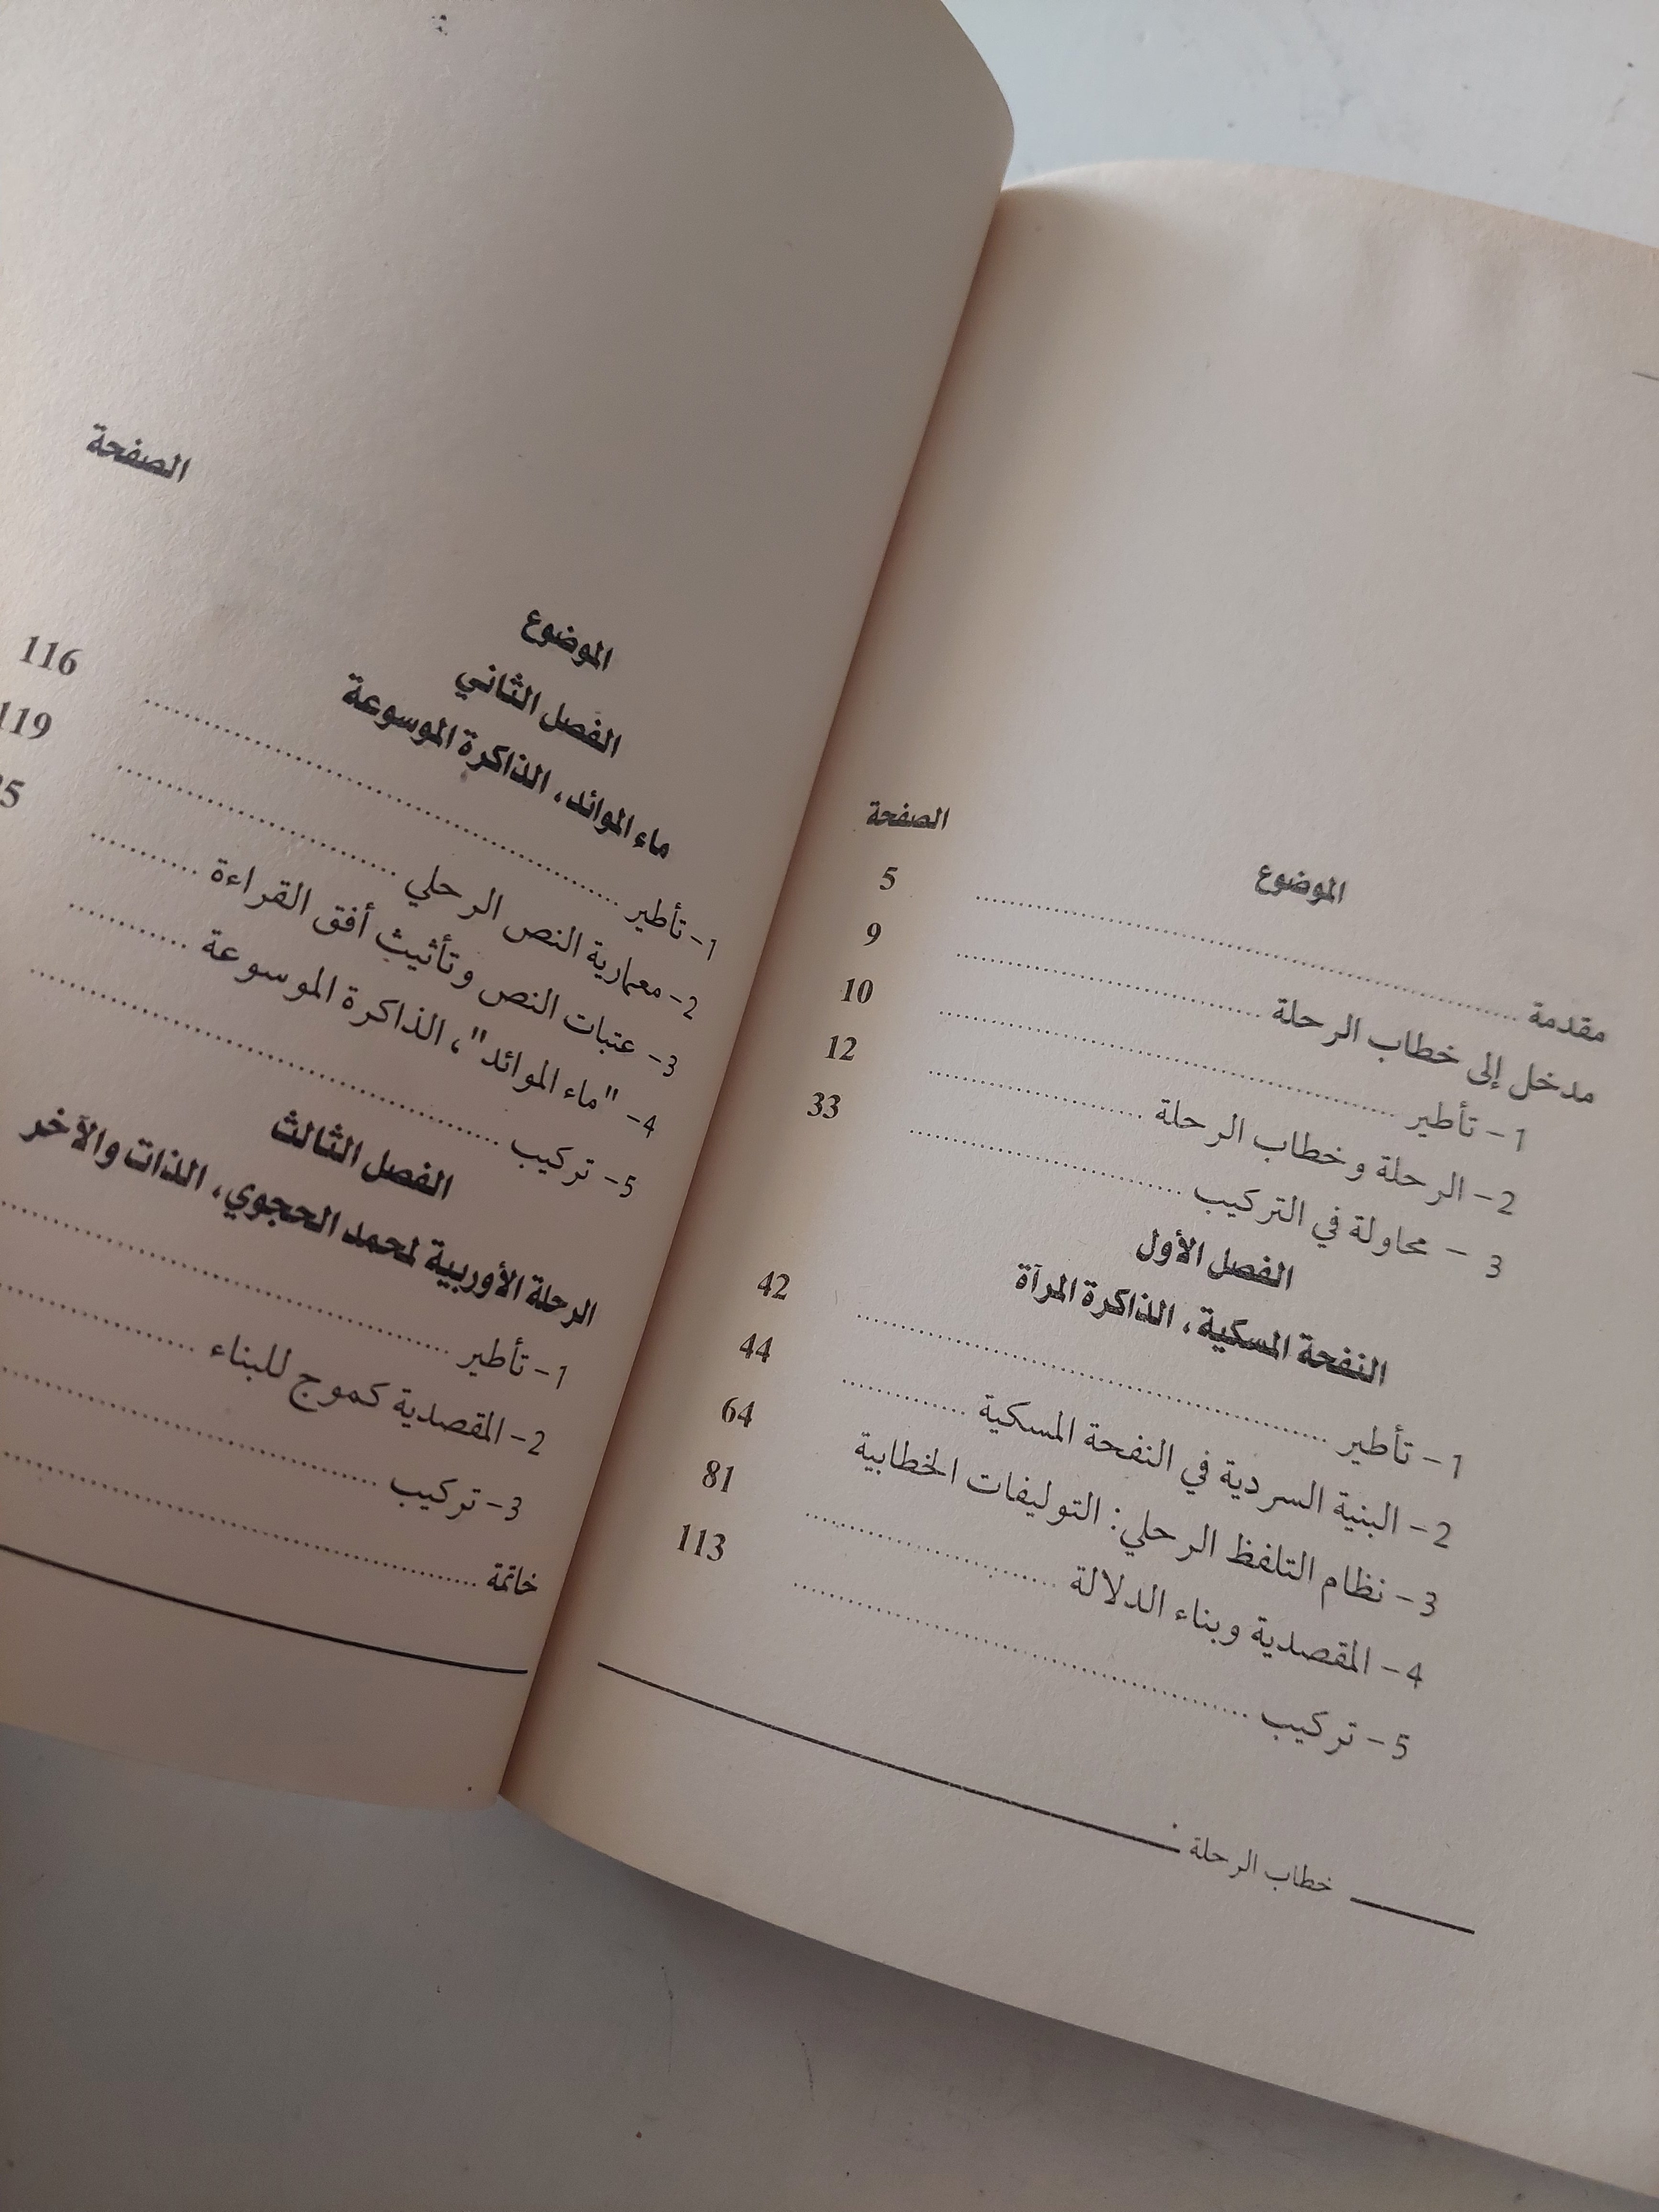 الموضوع الصفحة
مقدمة ........ 5
مدخل إلى خطاب الرحلة ........ 9
1 - تأطير ........ 10
2 - الرحلة وخطاب الرحلة ........ 12
3 - محاولة في التركيب ........ 33
الفصل الأول
النفحة المسكية، الذاكرة المرآة
1 - تأطير ........ 42
2 - البنية السردية في النفحة المسكية ........ 44
3 - نظام التلفظ الرحلي: التوليفات الخطابية 64
4 - المقصدية وبناء الدلالة ........ 81
5 - تركيب ........ 113
خطاب الرحلة
الموضوع الصفحة
الفصل الثاني
ماء الموائد، الذاكرة الموسوعة
1- تأطير ........ 116
2- معمارية النص الرحلي ........ 119
3- عتبات النص وتأثيث أفق القراءة ........
4- "ماء الموائد"، الذاكرة الموسوعة ........
5- تركيب ........
الفصل الثالث
الرحلة الأوربية لمحمد الحجوي، الذات والآخر
1- تأطير ........
2- المقصدية كموج للبناء ........
3- تركيب ........
خاتمة ........